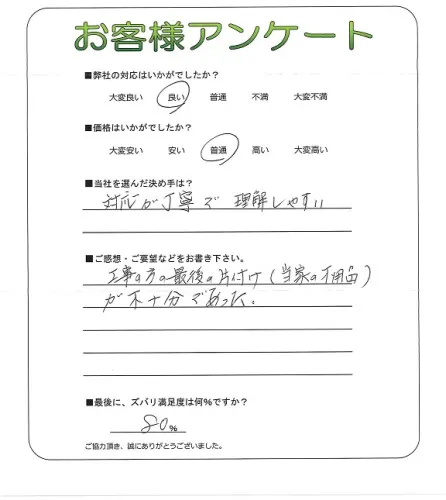 お客様アンケート
■弊社の対応はいかがでしたか？
大変良い 良い 普通 不満 大変不満
■価格はいかがでしたか？
大変安い 安い 普通 高い 大変高い
■当社を選んだ決め手は？
対応が丁寧で 理解しやすい
■ご感想・ご要望などをお書き下さい。
工事の方の最後の片付け(当家の不用品)
が不十分であった。
■最後に、ズバリ満足度は何％ですか？
80％
ご協力頂き、誠にありがとうございました。